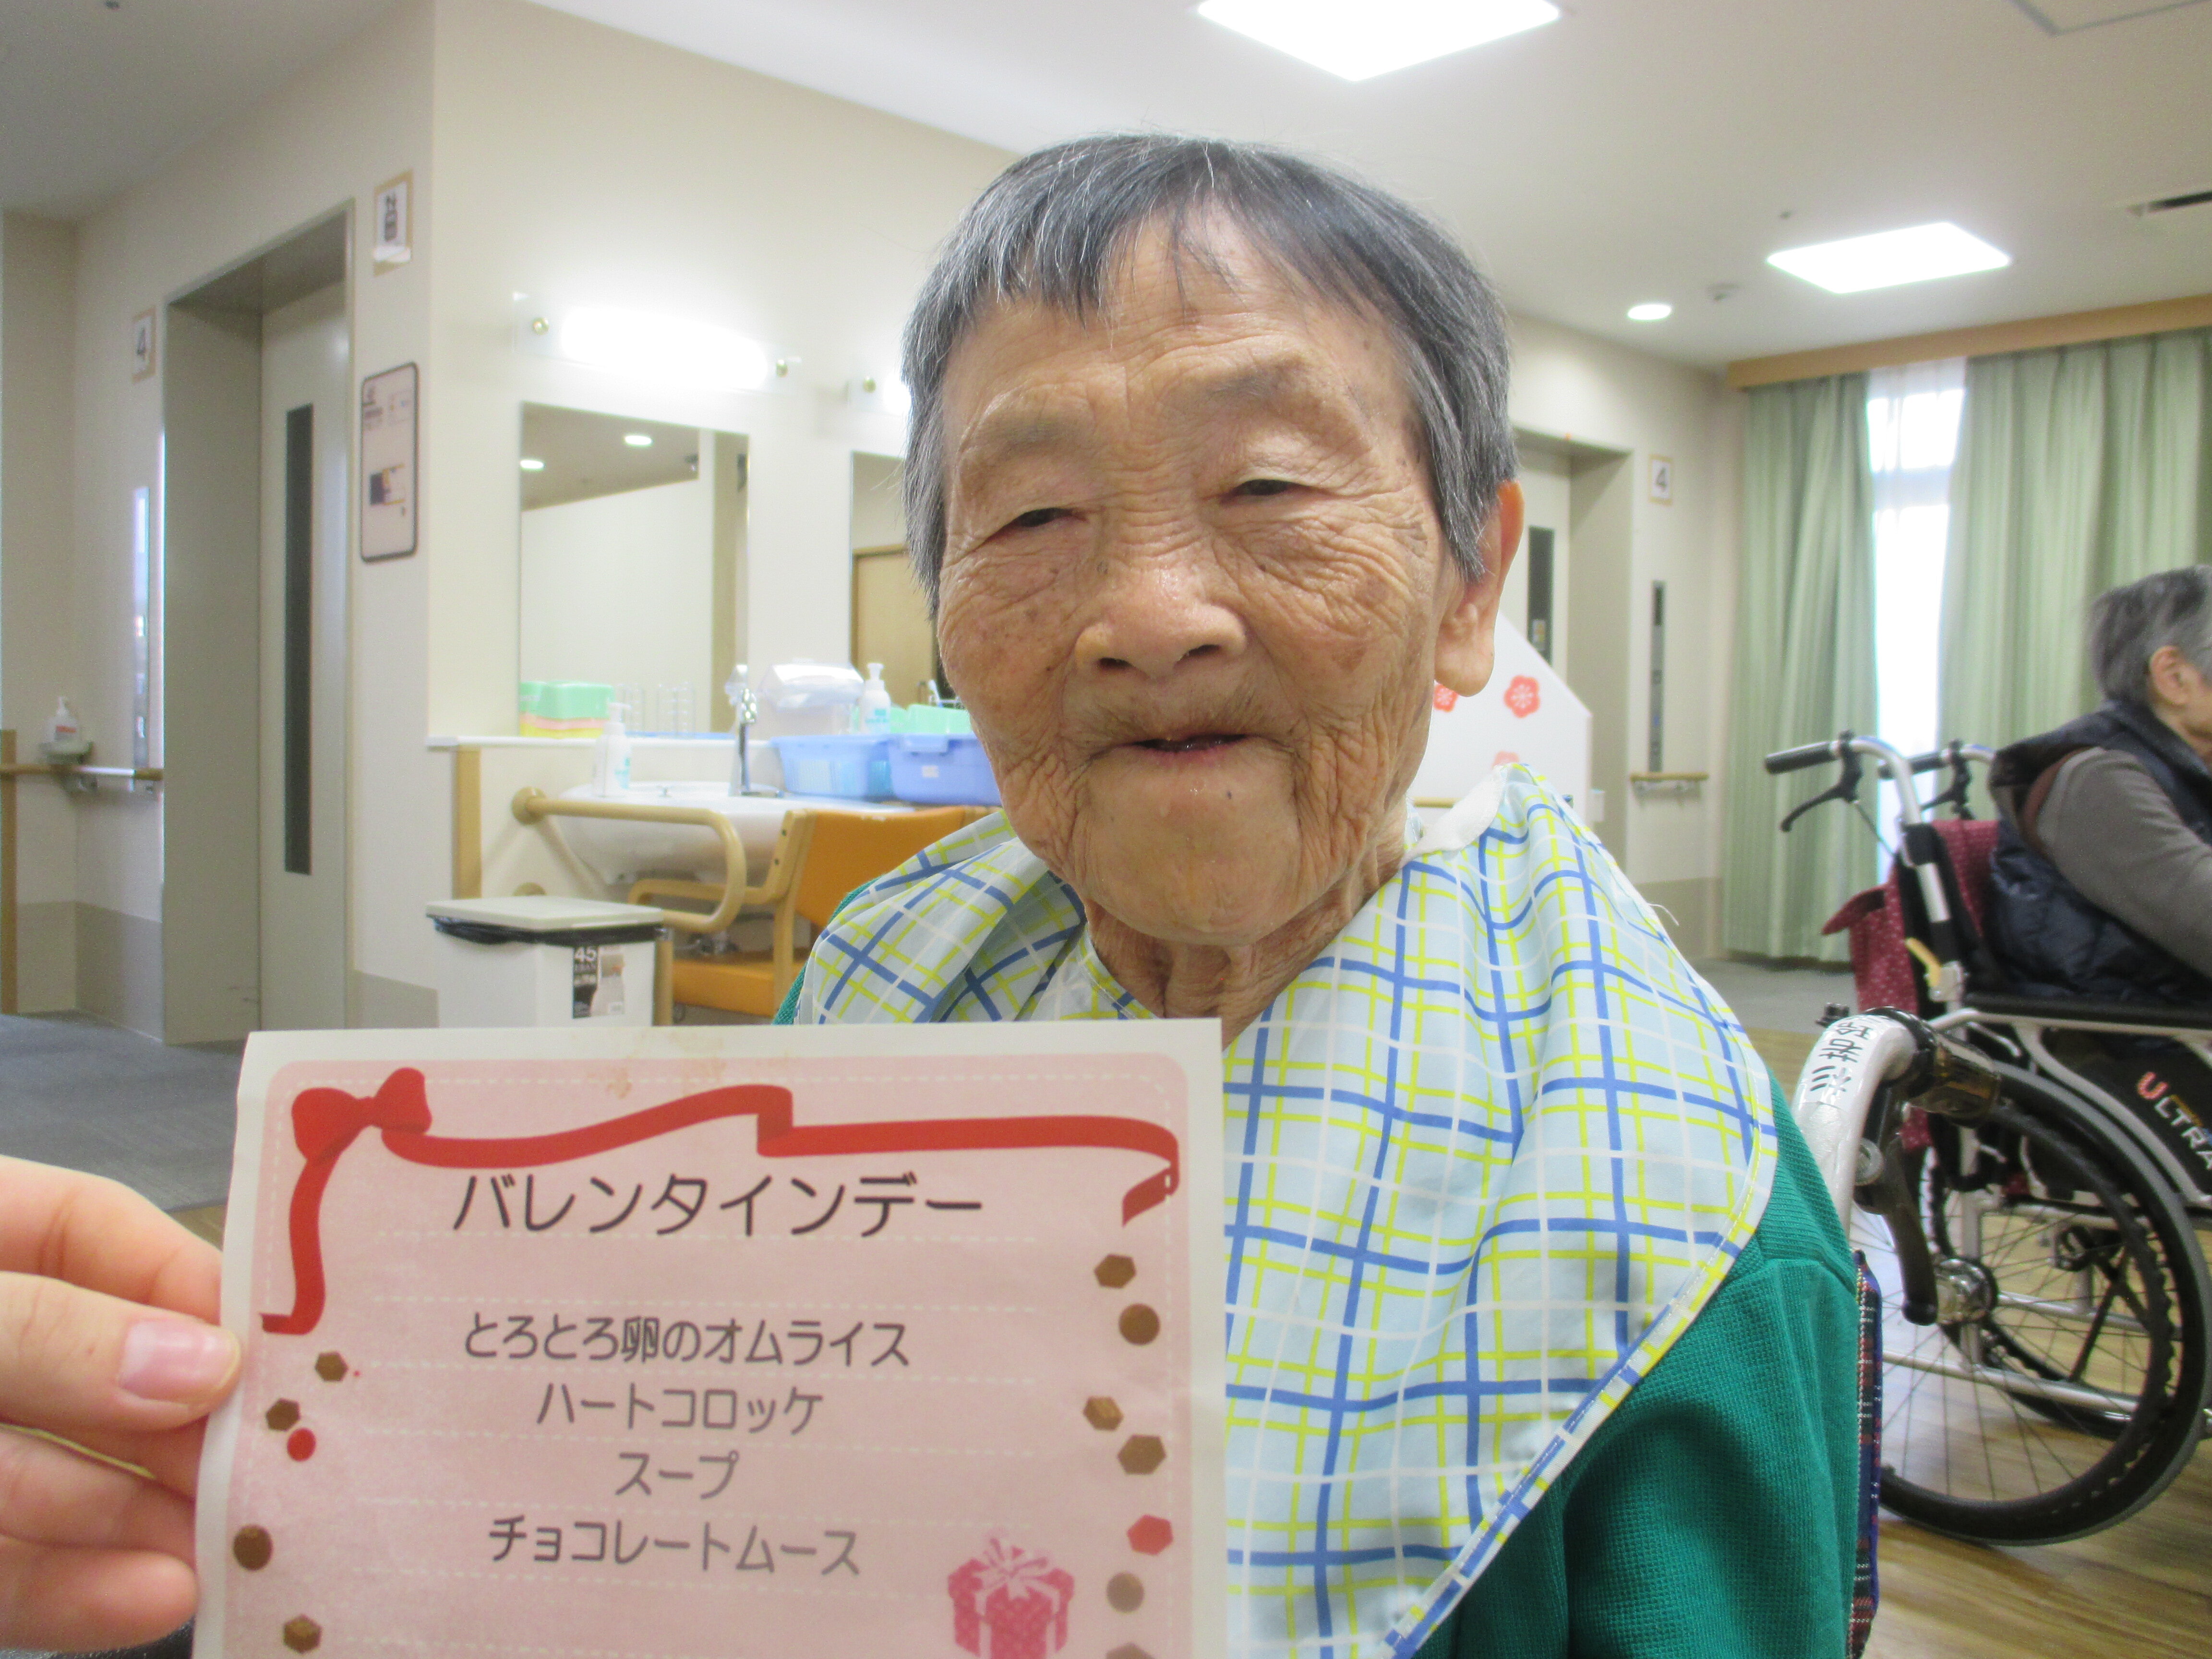 4
バレンタインデー
とろとろ卵のオムライス
ハートコロッケ
スープ
チョコレートムース
45
4
ULTRA